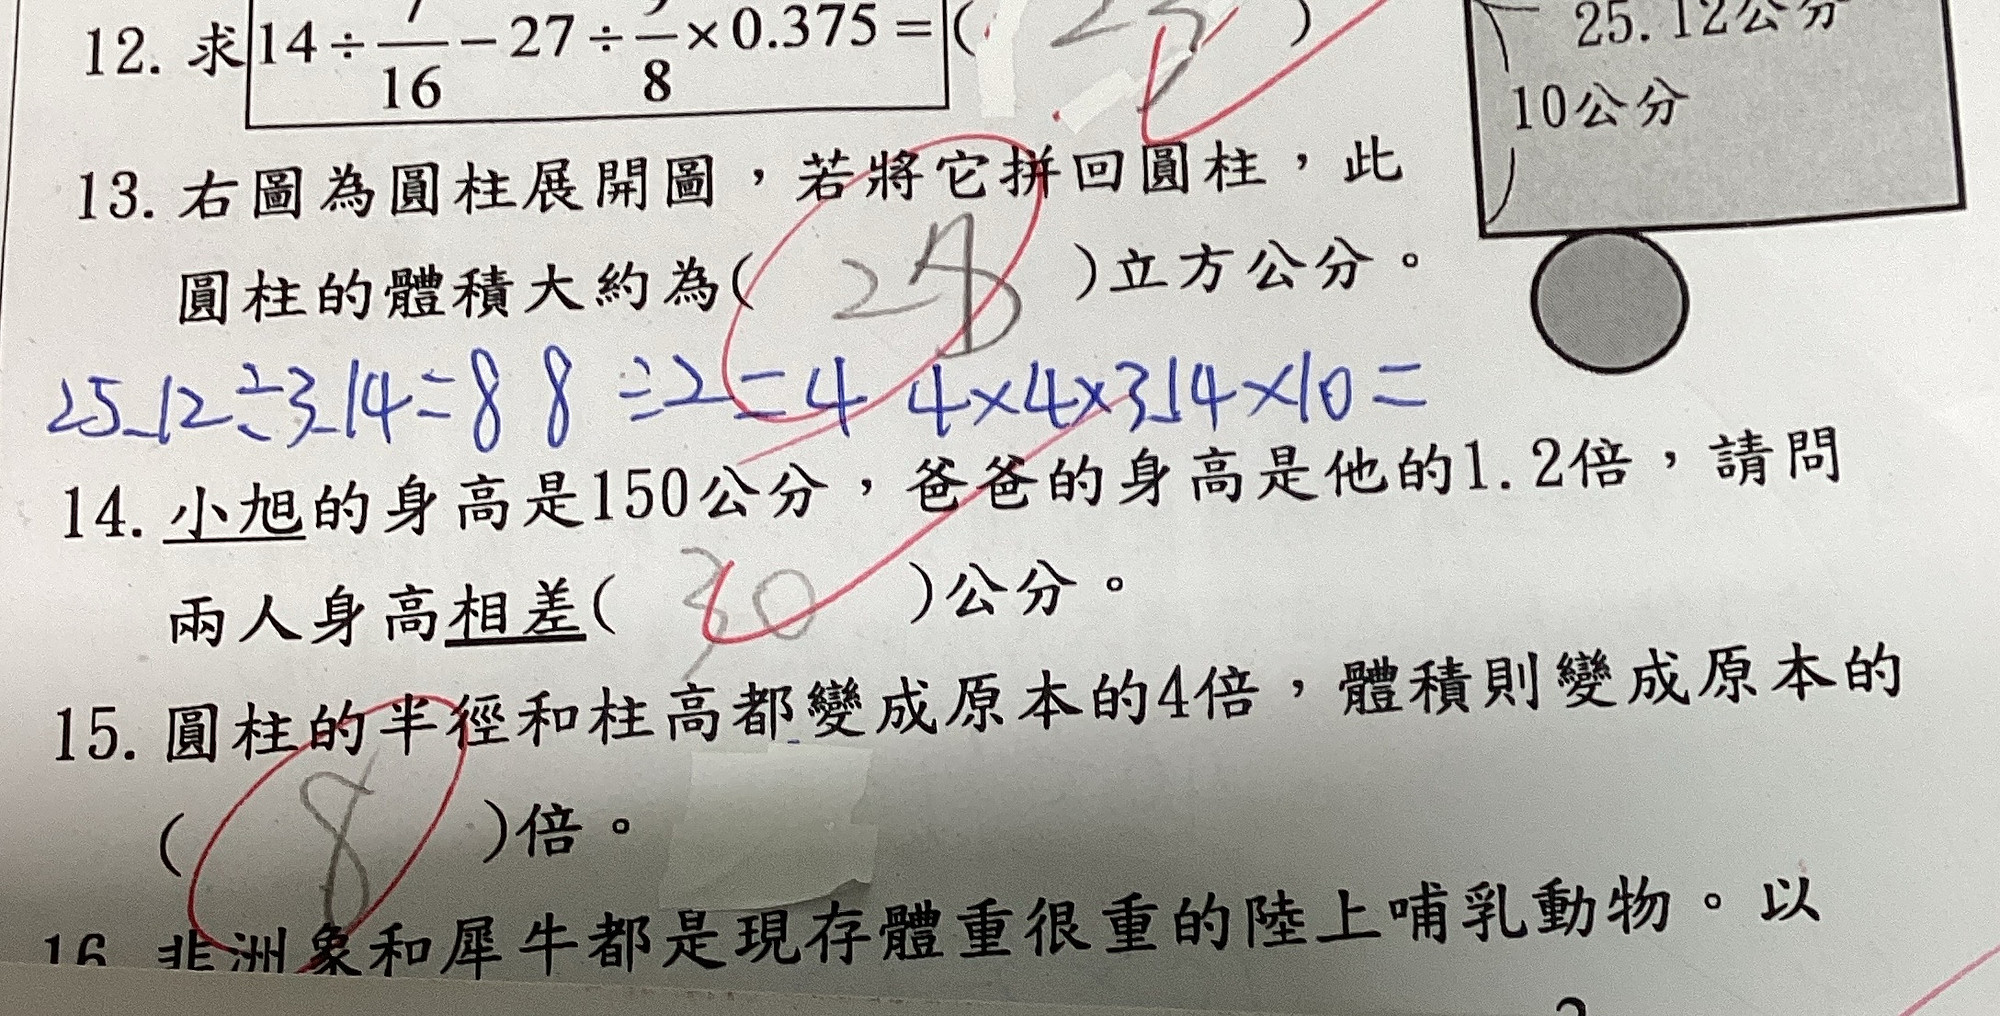 12. 求14÷7/16-27÷9/8×0.375=( )
25.12公分
10公分
13. 右圖為圓柱展開圖,若將它拼回圓柱,此
圓柱的體積大約為( )立方公分。
25.12÷3.14=8 8÷2=4 4×4×3.14×10=
14. 小旭的身高是150公分,爸爸的身高是他的1.2倍,請問
兩人身高相差( 30 )公分。
15. 圓柱的半徑和柱高都變成原本的4倍,體積則變成原本的
( 8 )倍。
16 非洲象和犀牛都是現存體重很重的陸上哺乳動物。以